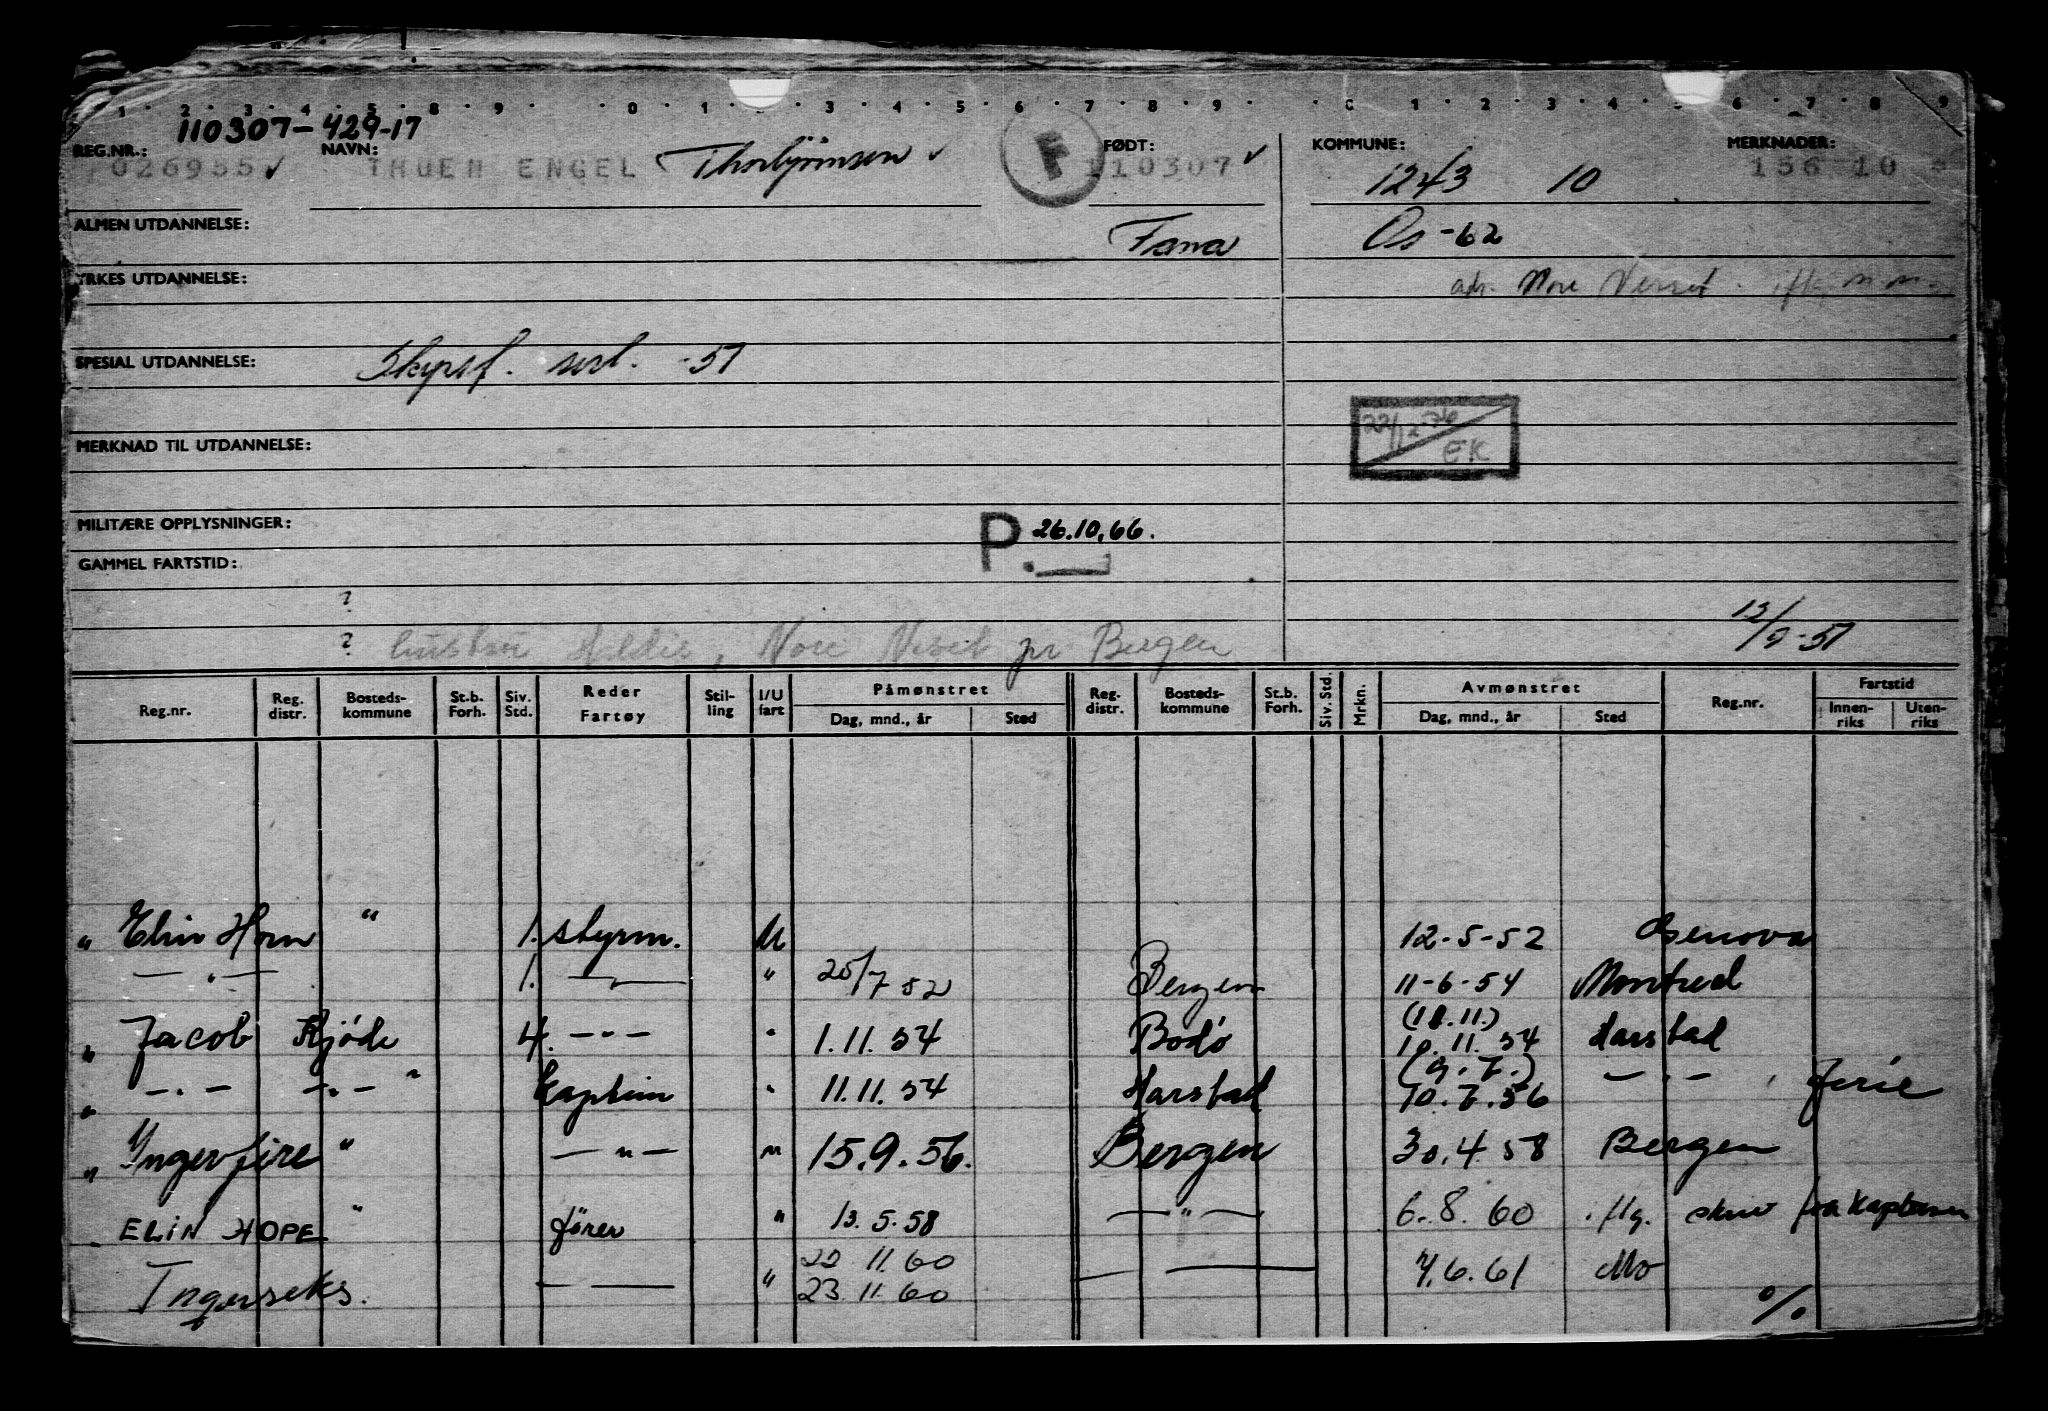 1 2 3 4 5 8 9 0 1 3 4 5 6 7 8 9 C 1 2 3 4 5 6 7 8 9
110307-429-17
REG.NR.: NAVN: FØDT: KOMMUNE: MERKNADER:
026955 ✓ THUEN ENGEL Thorbjörnsen ✓ F 110307 ✓ 1243 10 156 10
ALMEN UTDANNELSE: Fana Os -62
YRKES UTDANNELSE: adr. Nore Neset. iflg m.m.
SPESIAL UTDANNELSE: Skipsf. sert. -51
22/12-76 EK
MERKNAD TIL UTDANNELSE:
MILITÆRE OPPLYSNINGER: P. 26.10.66.
GAMMEL FARTSTID:
?
? hustru Aldis, Nore Neset pr Bergen 12/9-51
Reg.nr. Reg. distr. Bosteds- kommune St.b. Forh. Siv. Std. Reder Fartøy Stil- ling I/U fart Påmønstret Dag, mnd., år Sted Reg. distr. Bosteds- kommune St.b. Forh. Siv. Std. Mrkn. Avmønstret Dag, mnd., år Sted Reg.nr. Fartstid Innen- riks Uten- riks
" Elin Horn " 1. styrm. U 12-5-52 Genova
— " — 1. — " — " 25/7 52 Bergen 11-6-54 Montreal
" Jacob Kjöde 4. — " — " 1.11.54 Bodö (18.11.) 10.11.54 Harstad
" — " — — " — " Kaptein " 11.11.54 Harstad (9.7.) 10.7.56 — " — , ferie
" Ingerfire " — " — " 15.9.56. Bergen 30.4.58 Bergen
" ELIN HOPE " förer " 13.5.58 — " — 6.8.60 iflg. skriv fra Kapteinen
Ingerseks. — " 22 11 60 23.11.60 — — 7.6.61 Mo
%